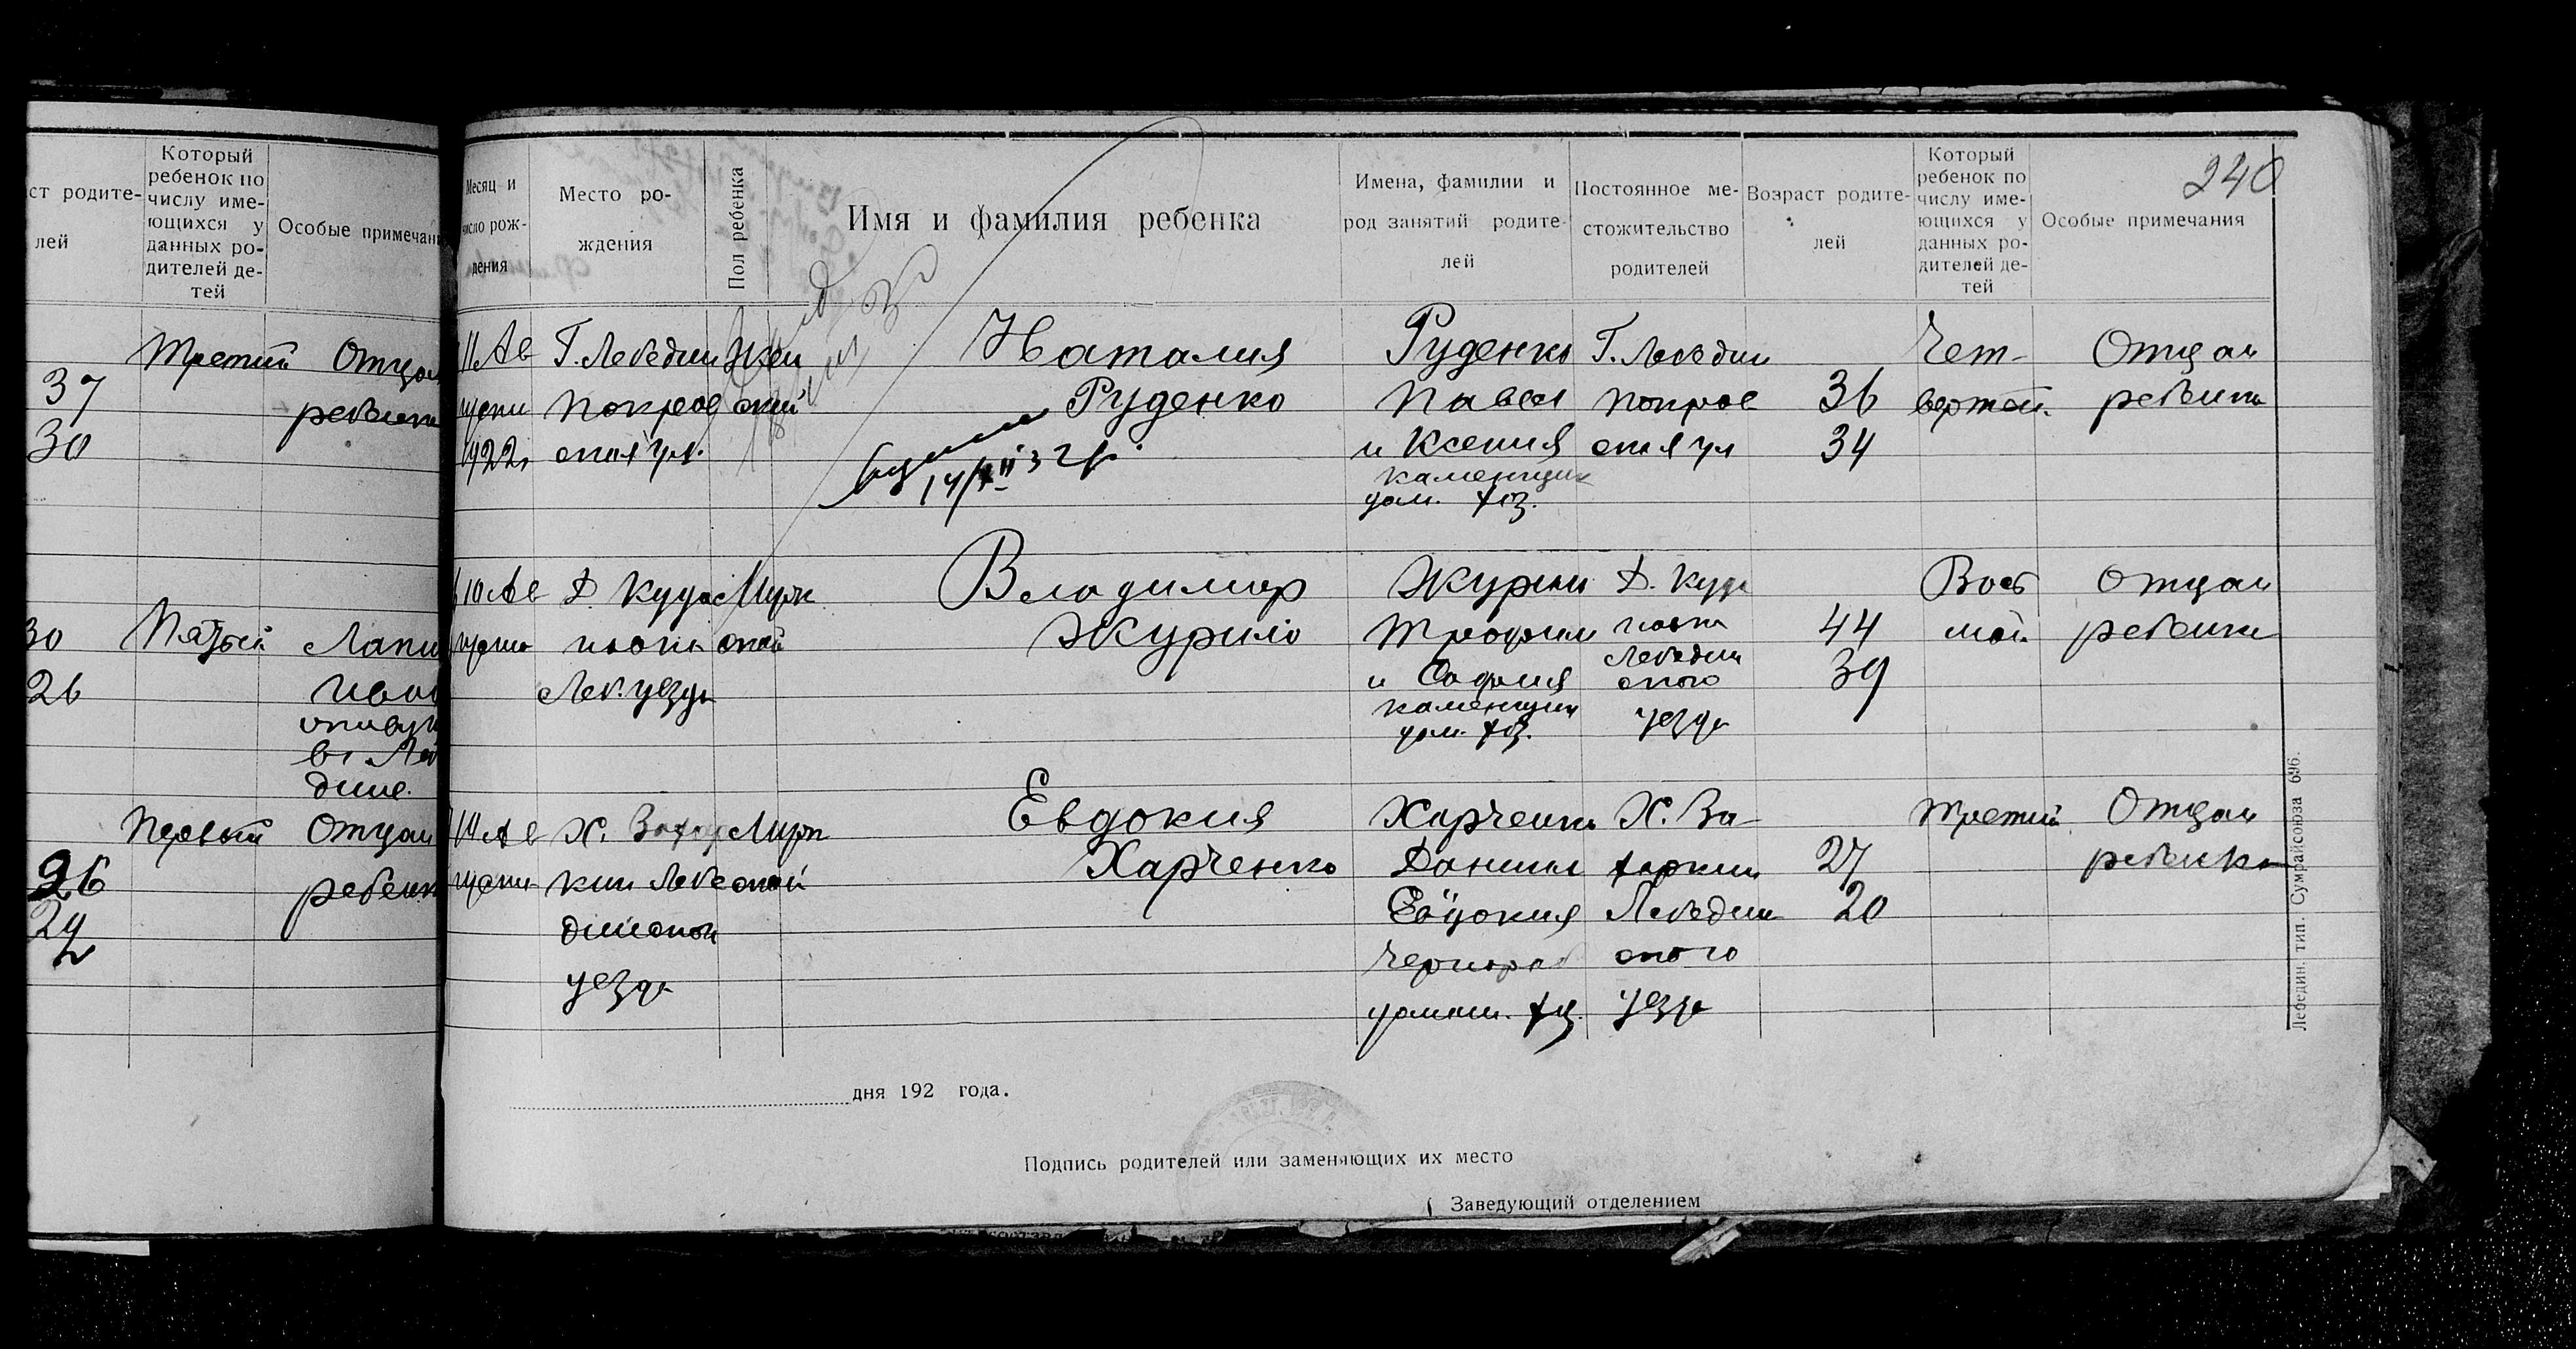 ст родите-
лей
Который
ребенок по
числу име-
ющихся у
данных ро-
дителей де-
тей
Особые примечани
37
30
Третий
Отцом
ребенка
30
26
Пятый
Первый
26
Отцом
ребенк
240
Месяц и
число рож-
дения
Место ро-
ждения
Пол ребенка
Имя и фамилия ребенка
Имена, фамилии и
род занятий родите-
лей
Постоянное ме-
стожительство
родителей
Возраст родите-
лей
Который
ребенок по
числу име-
ющихся у
данных ро-
дителей де-
тей
Особые примечания
11 Ав
густа
1922
Г. Лебедин
Покров
ская ул.
Жен
ский
Наталия
Руденко
Руденко
Павел
и Ксения
каменщик
дом. хоз.
Г. Лебедин
Покров
ская ул
36
34
Чет-
вертый
Отцом
ребенка
10 Ав
густа
Леб. уезда
Муж
ской
Владимир
Журило
Журило
Трофим
и София
каменщик
дом. хоз.
Лебедин
ского
уезда
44
39
Вось
мой
Отцом
ребенка
Ав
густа
Х. Захар
кин Лебе
динский
уезда
Муж
ской
Евдокия
Харченко
Харченко
Даниил
Евдокия
Чернораб
домаш. хоз.
Х. За-
харкин
Лебедин
ского
уезда
27
20
Третий
Отцом
ребенка
дня 192 года.
Подпись родителей или заменяющих их место
Заведующий отделением
Лебедин. тип. Сумрайсоюза 696.